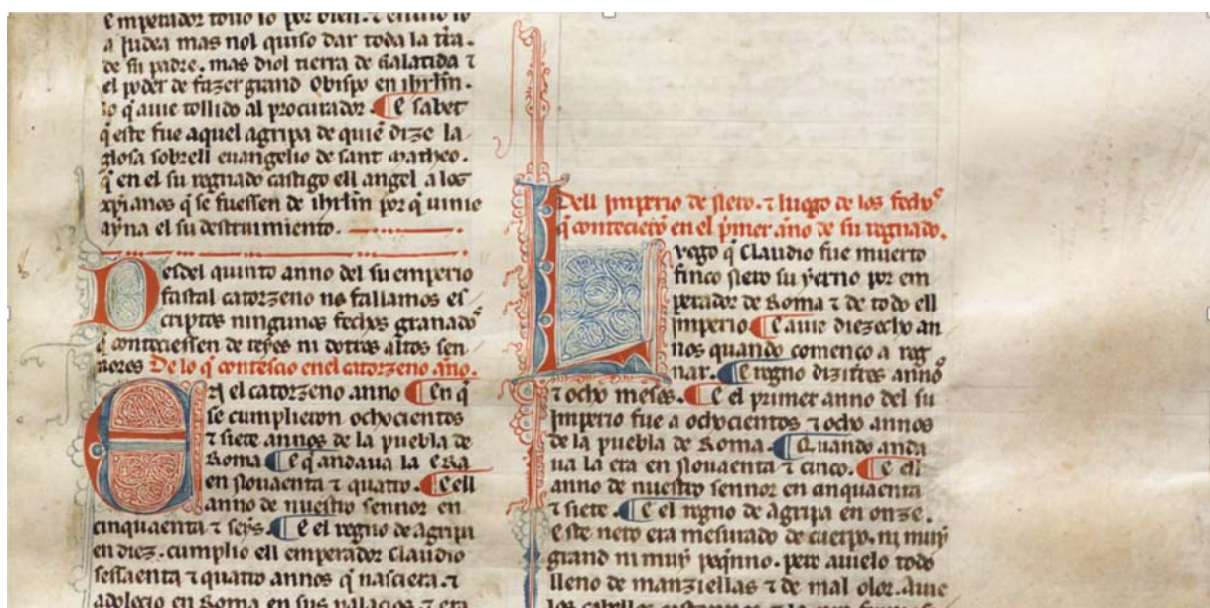 Emperador touo lo por bien. ⁊ enuio lo
a judea mas nol quiso dar toda la tr̃ra.
de su padre. mas diol tierra de Galatida ⁊
el poder de fazer grand Obispo en ihrlm̃.
lo q̃ auie tollido al procurador. ¶ E sabet
q̃ este fue aquel agripa de quiẽ dize la
glosa sobrell euangelio de sant Matheo.
q̃ en el su regnado castigo ell angel a los
xp̃ianos q̃ se fuessen de ihrlm̃ por q̃ uinie
ayna el su destruimiento.
Desdel quinto anno del su emperio
fastal catorzeno no fallamos es
criptos ningunos fechos granados
q̃ conteciessen de reyes ni dotros altos sen
nores De lo q̃ contescio enel catorzeno año.
En el catorzeno anno ¶ En q̃
se cumplieron ochocientos
⁊ siete annos de la puebla de
Roma ¶ E q̃ andaua la Era
en Nouaenta ⁊ quatro. ¶ E ell
anno de nuestro sennor en
cinquaenta ⁊ seys. ¶ E el regno de Agripa
en diez. cumplio ell emperador Claudio
sessaenta ⁊ quatro annos q̃ nasciera. ⁊
adolecio en Roma en sus palacios ⁊ era
Dell Imperio de Nero. ⁊ luego de los fechos
q̃ contecierõ en el p̃mer año de su regnado.
Luego q̃ Claudio fue muerto
finco Nero su yerno por em
perador de Roma ⁊ de todo ell
Imperio. ¶ E auie diezocho an
nos quando comenco a reg
nar. ¶ E regno diziętros annos
⁊ ocho meses. ¶ E el primer anno del su
Imperio fue a ochocientos ⁊ ocho annos
de la puebla de Roma. ¶ Quando anda
ua la era en Nouaenta ⁊ cinco. ¶ E ell
anno de nuestro sennor en cinquaenta
⁊ siete. ¶ E el regno de Agripa en onze.
Este nero era mesurado de cuerpo. ni muy
grand ni muy peq̃nno. pero auielo todo
lleno de manziellas ⁊ de mal olor. Auie
los cabellos